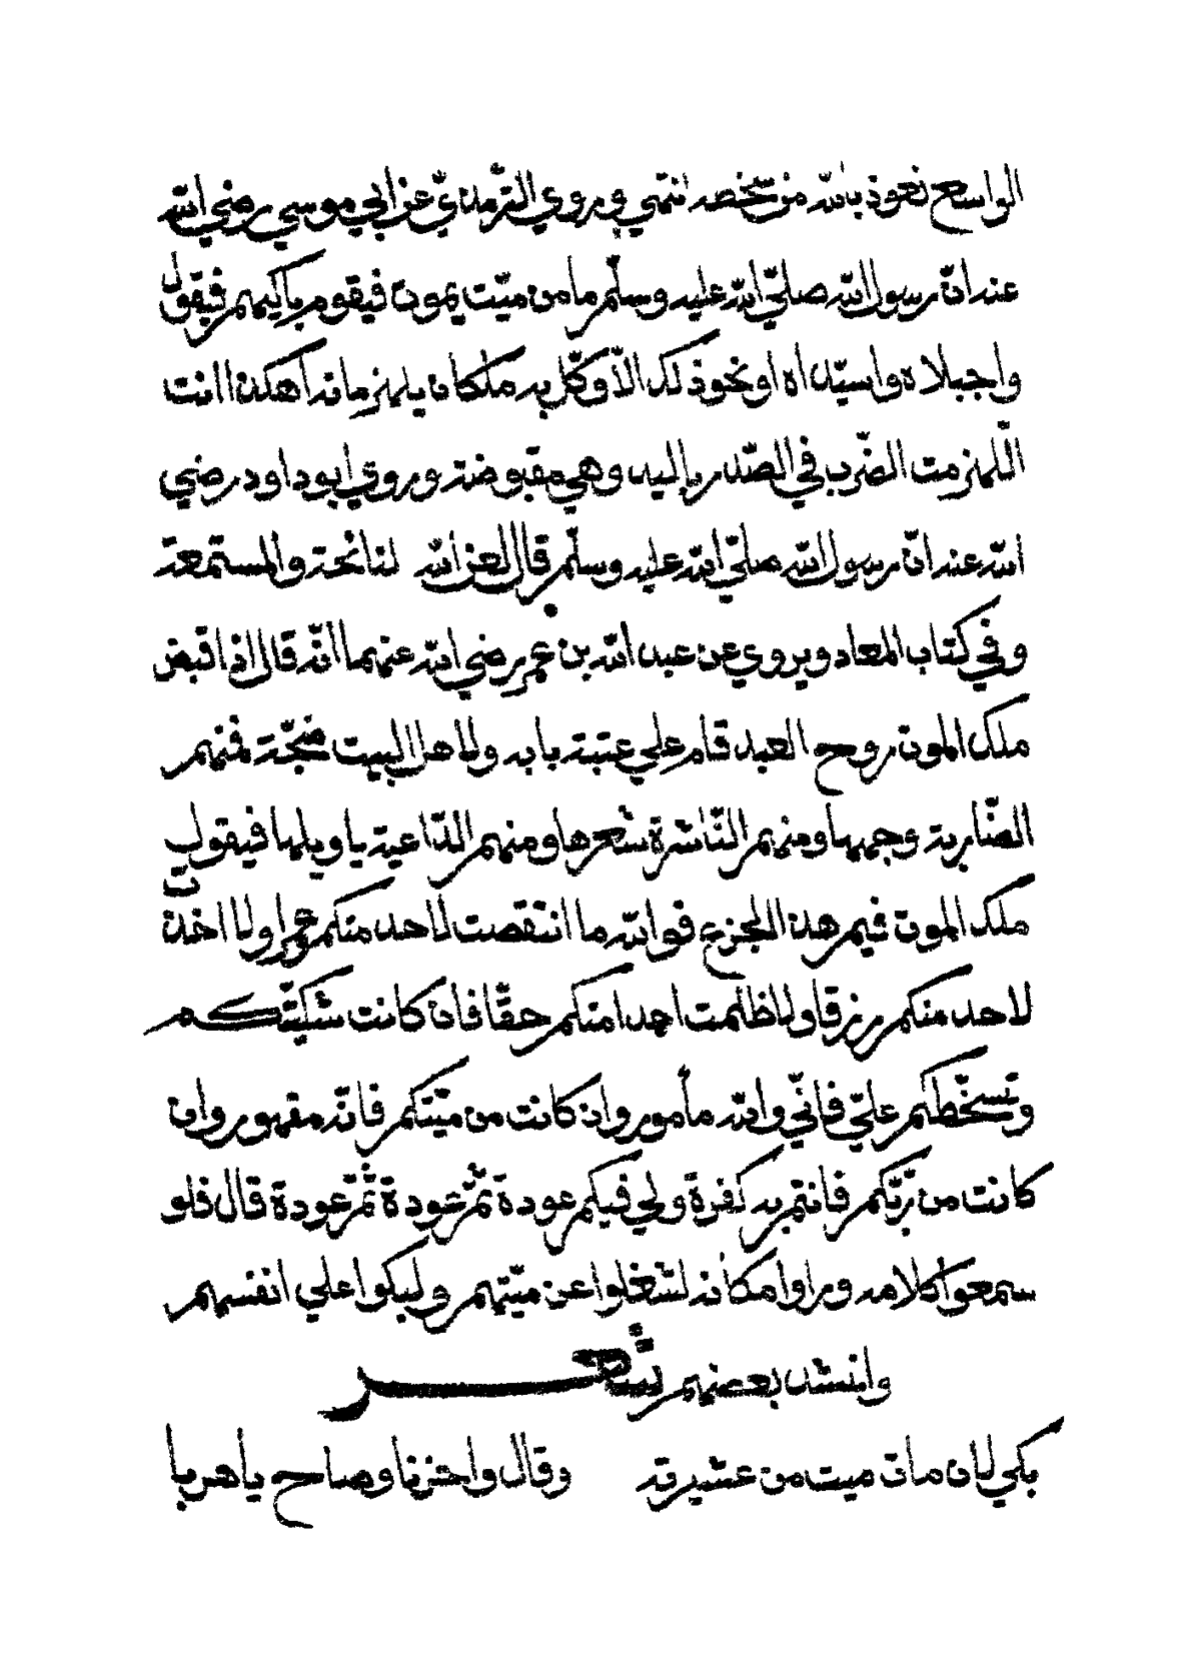 الواسع نعوذ بالله من سخطه انتهي وروي الترمذيّ عن ابي موسي رضي الله
عنه انّ رسول الله صلّي الله عليه وسلّم ما من ميّت يموت فيقوم باكيهم فيقول
واجبلاه واسيّداه او نحو ذلك الاّ وكّل به ملكان يلهزمانه اهكذا انت
اللّهزمت الضّرب في الصّدر باليد وهي مقبوضة وروي ابو داود رضي
الله عنه انّ رسول الله صلّي الله عليه وسلّم قال لعن الله لنائحة والمستمعة
وفي كتاب المعاد ويروي عن عبد الله بن عمر رضي الله عنهما انّه قال اذا قبض
ملك الموت روح العبد قام علي عتبة بابه ولاهل البيت ضجّة فمنهم
الضّاربة وجهها ومنهم النّاشرة شعرها ومنهم الدّاعية ياويلها فيقول
ملك الموت فيم هذا الجزع فوالله ما انتقصت لاحد منكم عمرا ولا اخذت
لاحد منكم رزقا ولا ظلمت احدا منكم حقّا فان كانت شكيّتكم
وتسخّطكم عليّ فانّي والله مأمور وان كانت من ميّتكم فانّه مقهور وان
كانت من ربّكم فانتم به كفرة ولي فيكم عودة ثمّ عودة ثمّ عودة قال فلو
سمعوا كلامه وراوا مكانه لشغلوا عن ميّتهم ولبكوا علي انفسهم
وانشد بعضهم شعر
بكي لان مات ميت من عشيرته وقال واحزنا وصاح ياهربا